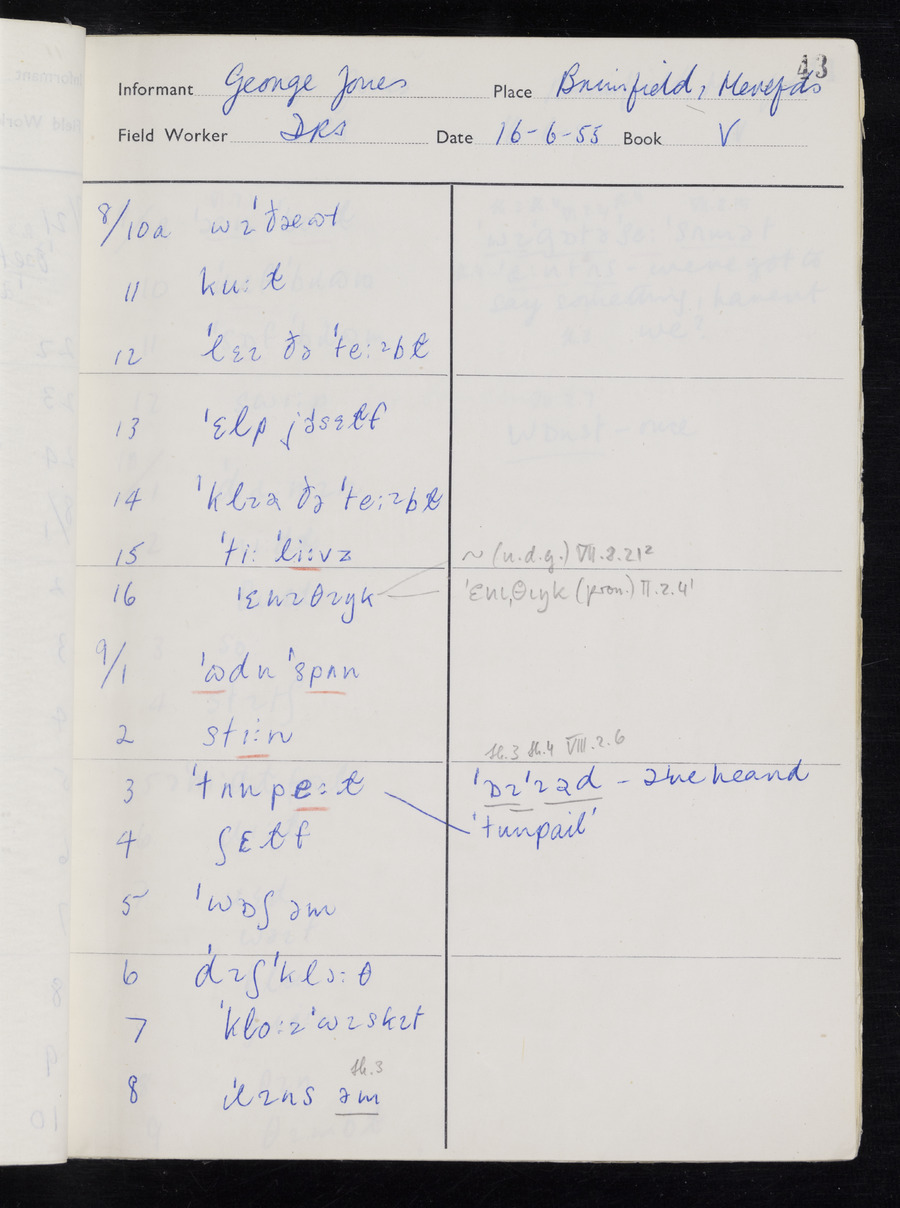 43
Informant George Jones Place Brimfield, Herefds
Field Worker DRS Date 16-6-55 Book V
8/10a
11 kuːɫ
12 ˈlɛɪ ðə ˈteːɪbɫ
13 ˈɛlp jəsɛɫf
14 ˈklɪə ðə ˈteːɪbɫ
15 ˈtiː ˈliːvz ~ (n.d.g.) VII.8.21²
16 ˈɛnɪθɪŋk ˈɛnɪˌθɪŋk (pron.) II.2.4¹
9/1 ˈɷdn ˈspɷn
2 stiːn
sh.3 sh.4 VIII.2.6
3 ˈtɷnpeːɫ ˈɒɪˈɪəd – I've heard
'tunpail'
4 ʃɛɫf
5 ˈwɒʃ əm
6 ˈdɪʃˈklɔːθ
7
sh.3
8 ɪɫɪns əm